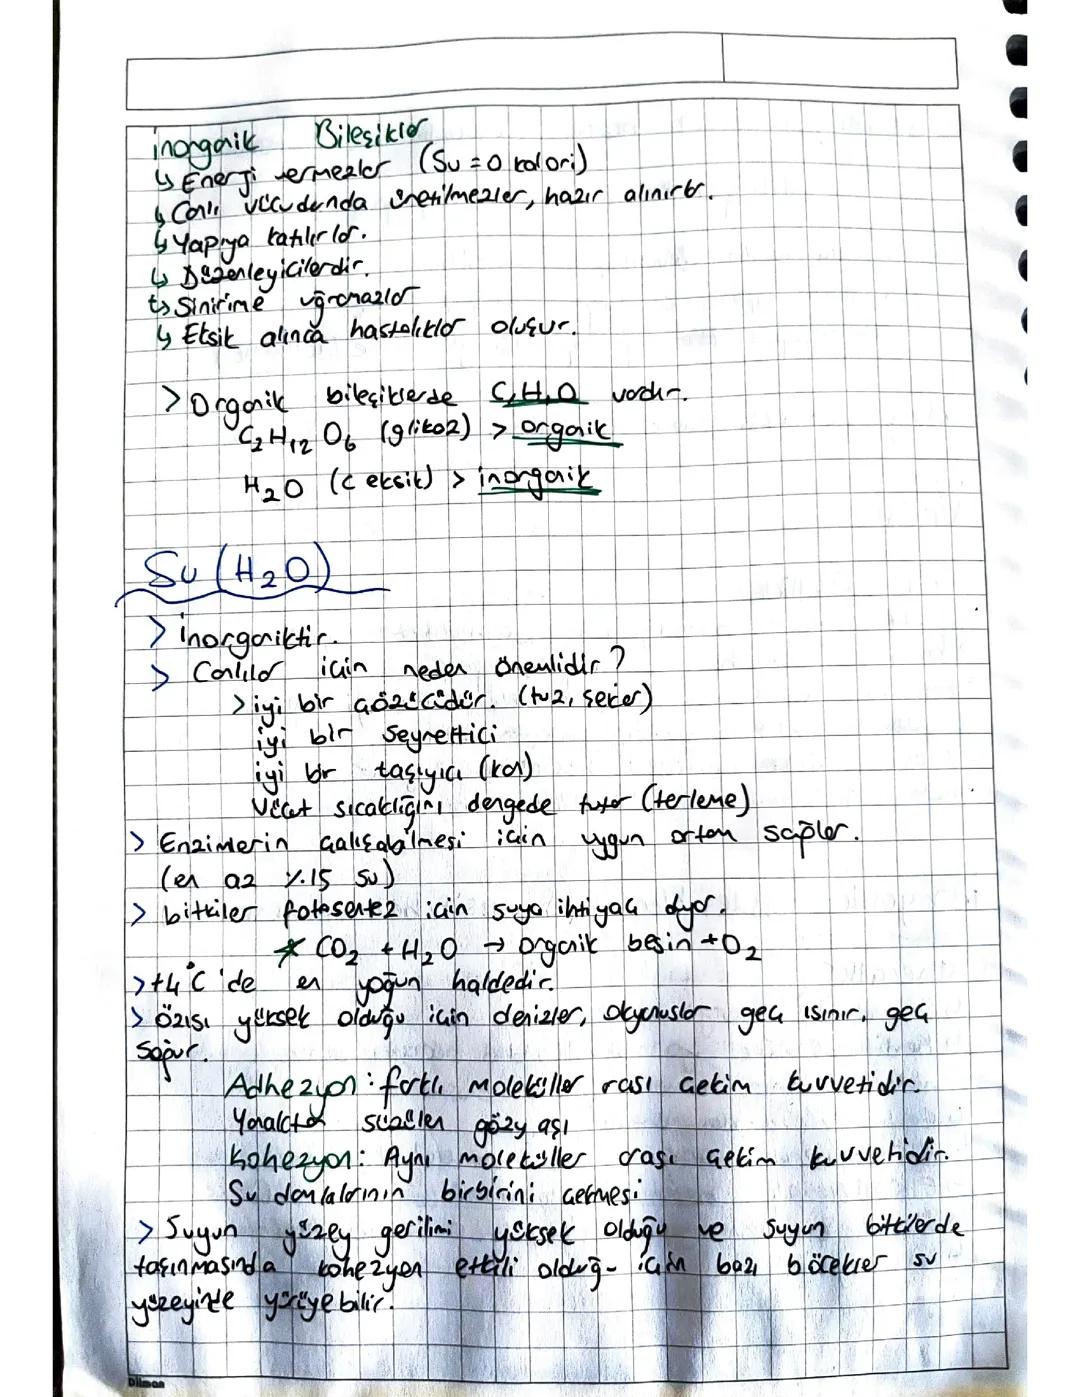 inorganik Bileşikler
↳ Enerji vermezler (Su = 0 kalori)
↳ Canlı vücudunda üretilmezler, hazır alınırlar.
↳ Yapıya katılırlar.
↳ Düzenleyicilerdir.
↳ Sinirime uğramazlar
↳ Eksik alınca hastalıklar oluşur.
> Organik bileşiklerde C,H,O vardır.
C₂H₁₂O₆ (glikoz) > organik
H₂O (C eksik) > inorganik
Su (H₂O)
> inorganiktir.
> Canlılar için neden önemlidir?
> iyi bir çözücüdür. (tuz, şeker)
iyi bir seyreltici
iyi bir taşıyıcı (kan)
Vücut sıcaklığını dengede tutar (terleme)
> Enzimlerin çalışabilmesi için uygun ortam sağlar.
(en az %15 su)
> bitkiler fotosentez için suya ihtiyaç duyar.
* CO₂ + H₂O → organik besin + O₂
> +4°C 'de en yoğun haldedir.
> özısı yüksek olduğu için denizler, okyanuslar geç ısınır, geç
soğur.
Adhezyon: farklı moleküller arası çekim kuvvetidir.
süzülen gözyaşı
Kohezyon: Aynı moleküller arası çekim kuvvetidir.
Su damlalarının birbirini çekmesi
> Suyun yüzey gerilimi yüksek olduğu ve suyun bitkilerde
taşınmasında kohezyon etkili olduğ- için bazı böcekler su
yüzeyinde yürüyebilir.
Dilman